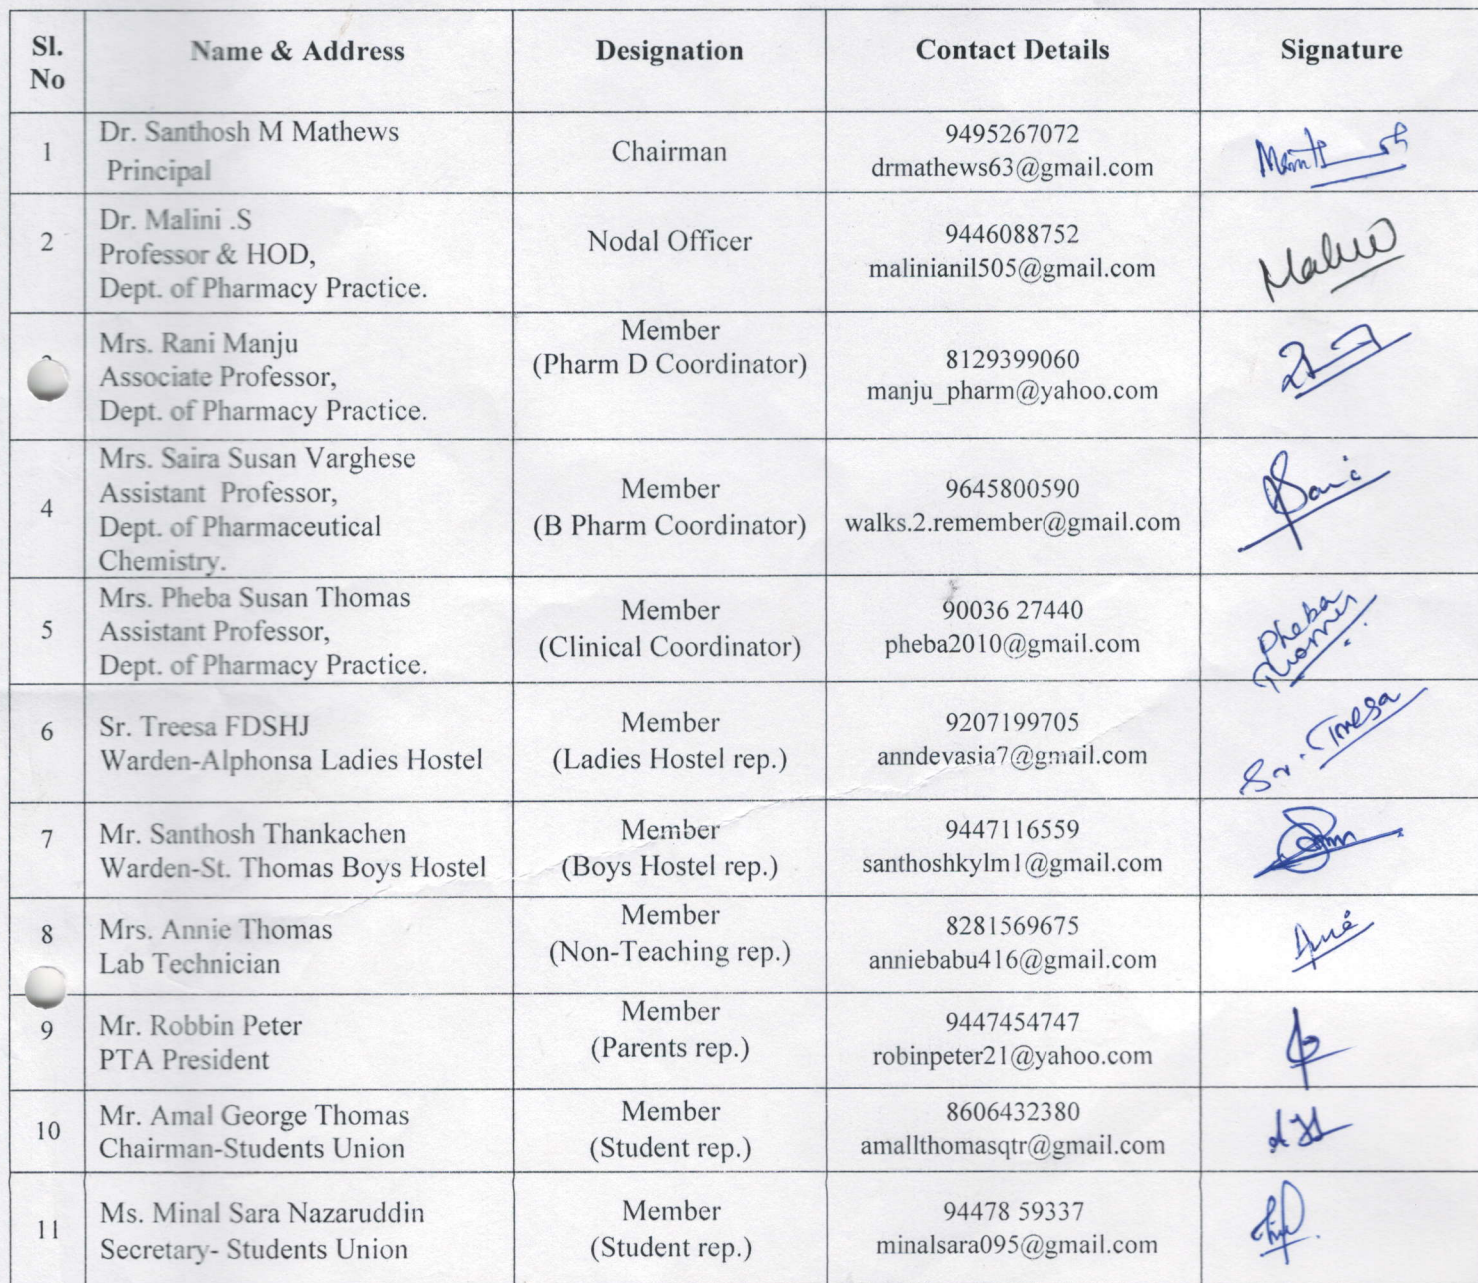 Sl. No
Name & Address
Designation
Contact Details
Signature
1
Dr. Santhosh M Mathews
Principal
Chairman
9495267072
drmathews63@gmail.com
2
Dr. Malini .S
Professor & HOD,
Dept. of Pharmacy Practice.
Nodal Officer
9446088752
malinianil505@gmail.com
Mrs. Rani Manju
Associate Professor,
Dept. of Pharmacy Practice.
Member
(Pharm D Coordinator)
8129399060
manju_pharm@yahoo.com
4
Mrs. Saira Susan Varghese
Assistant Professor,
Dept. of Pharmaceutical
Chemistry.
Member
(B Pharm Coordinator)
9645800590
walks.2.remember@gmail.com
5
Mrs. Pheba Susan Thomas
Assistant Professor,
Dept. of Pharmacy Practice.
Member
(Clinical Coordinator)
90036 27440
pheba2010@gmail.com
Pheba
Thomas
6
Sr. Treesa FDSHJ
Warden-Alphonsa Ladies Hostel
Member
(Ladies Hostel rep.)
9207199705
anndevasia7@gmail.com
Sr. Treesa
7
Mr. Santhosh Thankachen
Warden-St. Thomas Boys Hostel
Member
(Boys Hostel rep.)
9447116559
santhoshkylm1@gmail.com
8
Mrs. Annie Thomas
Lab Technician
Member
(Non-Teaching rep.)
8281569675
anniebabu416@gmail.com
9
Mr. Robbin Peter
PTA President
Member
(Parents rep.)
9447454747
robinpeter21@yahoo.com
10
Mr. Amal George Thomas
Chairman-Students Union
Member
(Student rep.)
8606432380
amallthomasqtr@gmail.com
11
Ms. Minal Sara Nazaruddin
Secretary- Students Union
Member
(Student rep.)
94478 59337
minalsara095@gmail.com